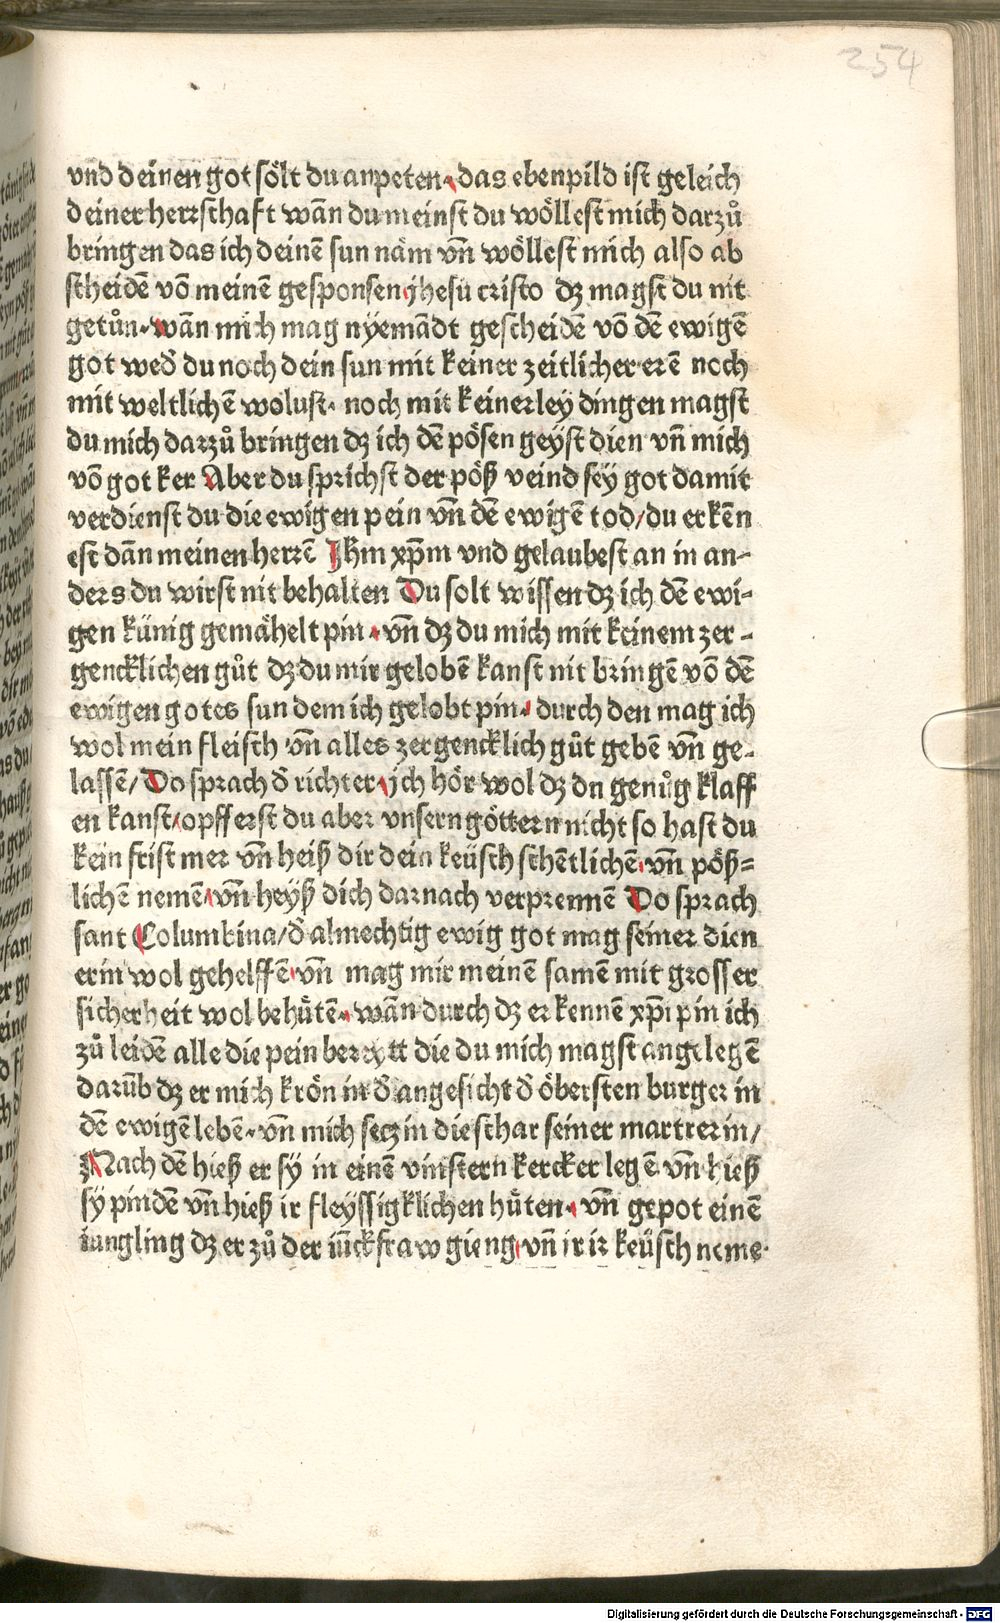 254
vnd deinen got sölt du anpeten. das ebenpild ist geleich
deiner herrschaft wañ du meinst du wöllest mich darzů
bringen das ich deinē sun näm vñ wöllest mich also ab
scheidē vō meinē gesponsen jhesu cristo dz magst du nit
getůn. wañ mich mag nyemādt gescheidē vō dē ewigē
got wed̕ du noch dein sun mit keiner zeitlicher erē noch
mit weltlichē wolust. noch mit keinerley dingen magst
du mich darzů bringen dz ich dē pösen geyst dien vñ mich
vō got ker Aber du sprichst der pöß veind sey got damit
verdienst du die ewigen pein vñ dē ewigē tod/ du erkēn
est dañ meinen herrē Jhm xp̄m vnd gelaubest an in an-
ders du wirst nit behalten Du solt wissen dz ich dē ewi-
gen künig gemähelt pin. vñ dz du mich mit keinem zer-
gencklichen gůt dz du mir gelobē kanst nit bringē vō dē
ewigen gotes sun dem ich gelobt pin. durch den mag ich
wol mein fleisch vñ alles zergencklich gůt gebē vñ ge-
lassē/ Do sprach d̕ richter. ich hör wol dz dn genůg klaff
en kanst/ opfferst du aber vnsern göttern nicht so hast du
kein frist mer vñ heiß dir dein keüsch schētlichē. vñ pöß=
lichē nemē. vñ heyß dich darnach verprennē Do sprach
sant Columbina/ d̕ almechtig ewig got mag seiner dien
erin wol gehelffē. vñ mag mir meinē samē mit grosser
sicherheit wol behütē. wañ durch dz erkennē xp̄i pin ich
zů leidē alle die pein bereytt die du mich magst angelegē
darüb dz er mich krön in d̕ angesicht d̕ öbersten burger in
dē ewigē lebē. vñ mich secz in die schar seiner martrerin/
Nach dē hieß er sy in einē vinstern kercker legē vñ hieß
sy pindē vñ hieß ir fleyssigklichen hüten. vñ gepot einē
iungling dz er zů der iückfraw gieng. vñ ir ir keüsch neme.
Digitalisierung gefördert durch die Deutsche Forschungsgemeinschaft - DFG